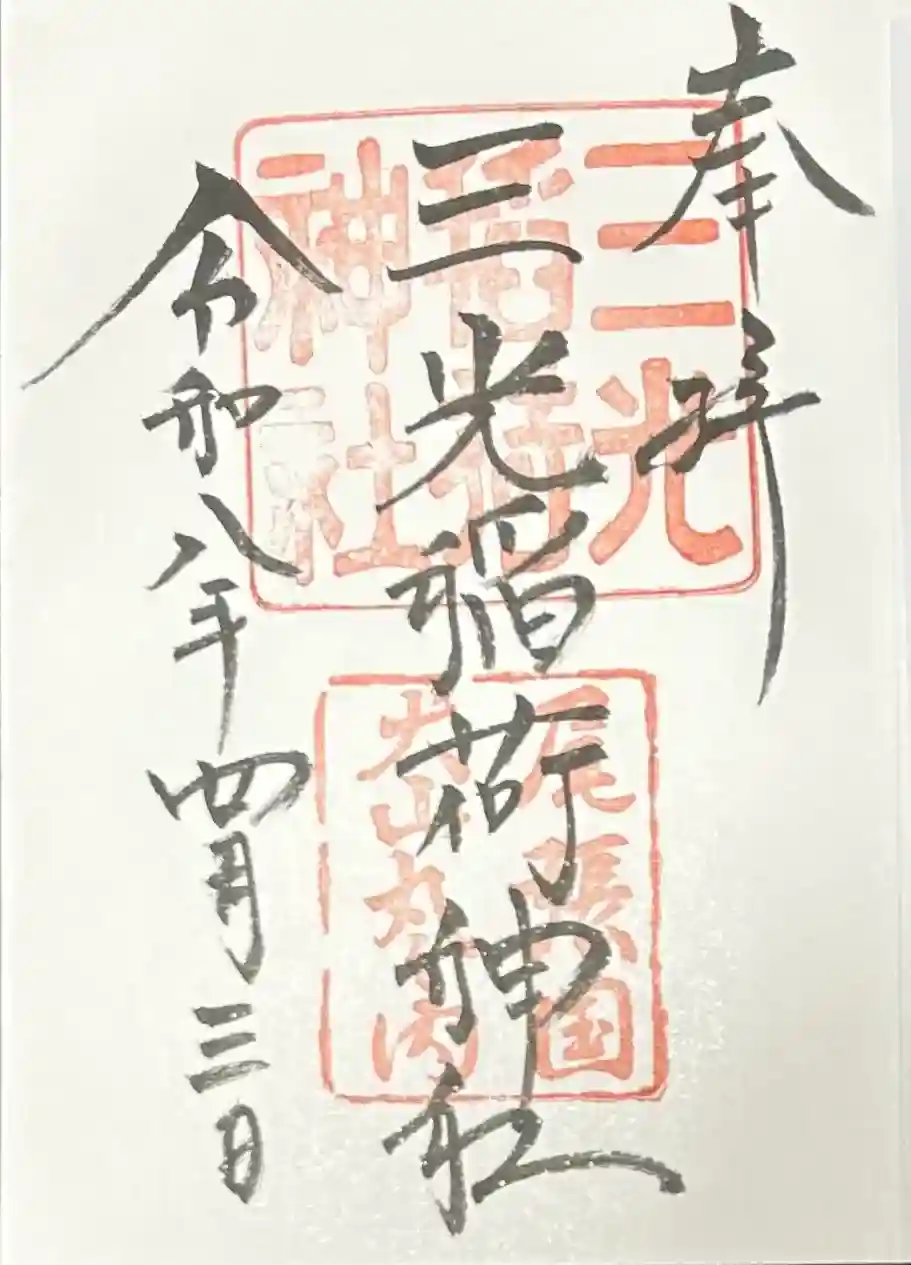 奉拝
三光稲荷神社
令和八年四月三日
三光稲荷神社
尾張国
犬山丸の内